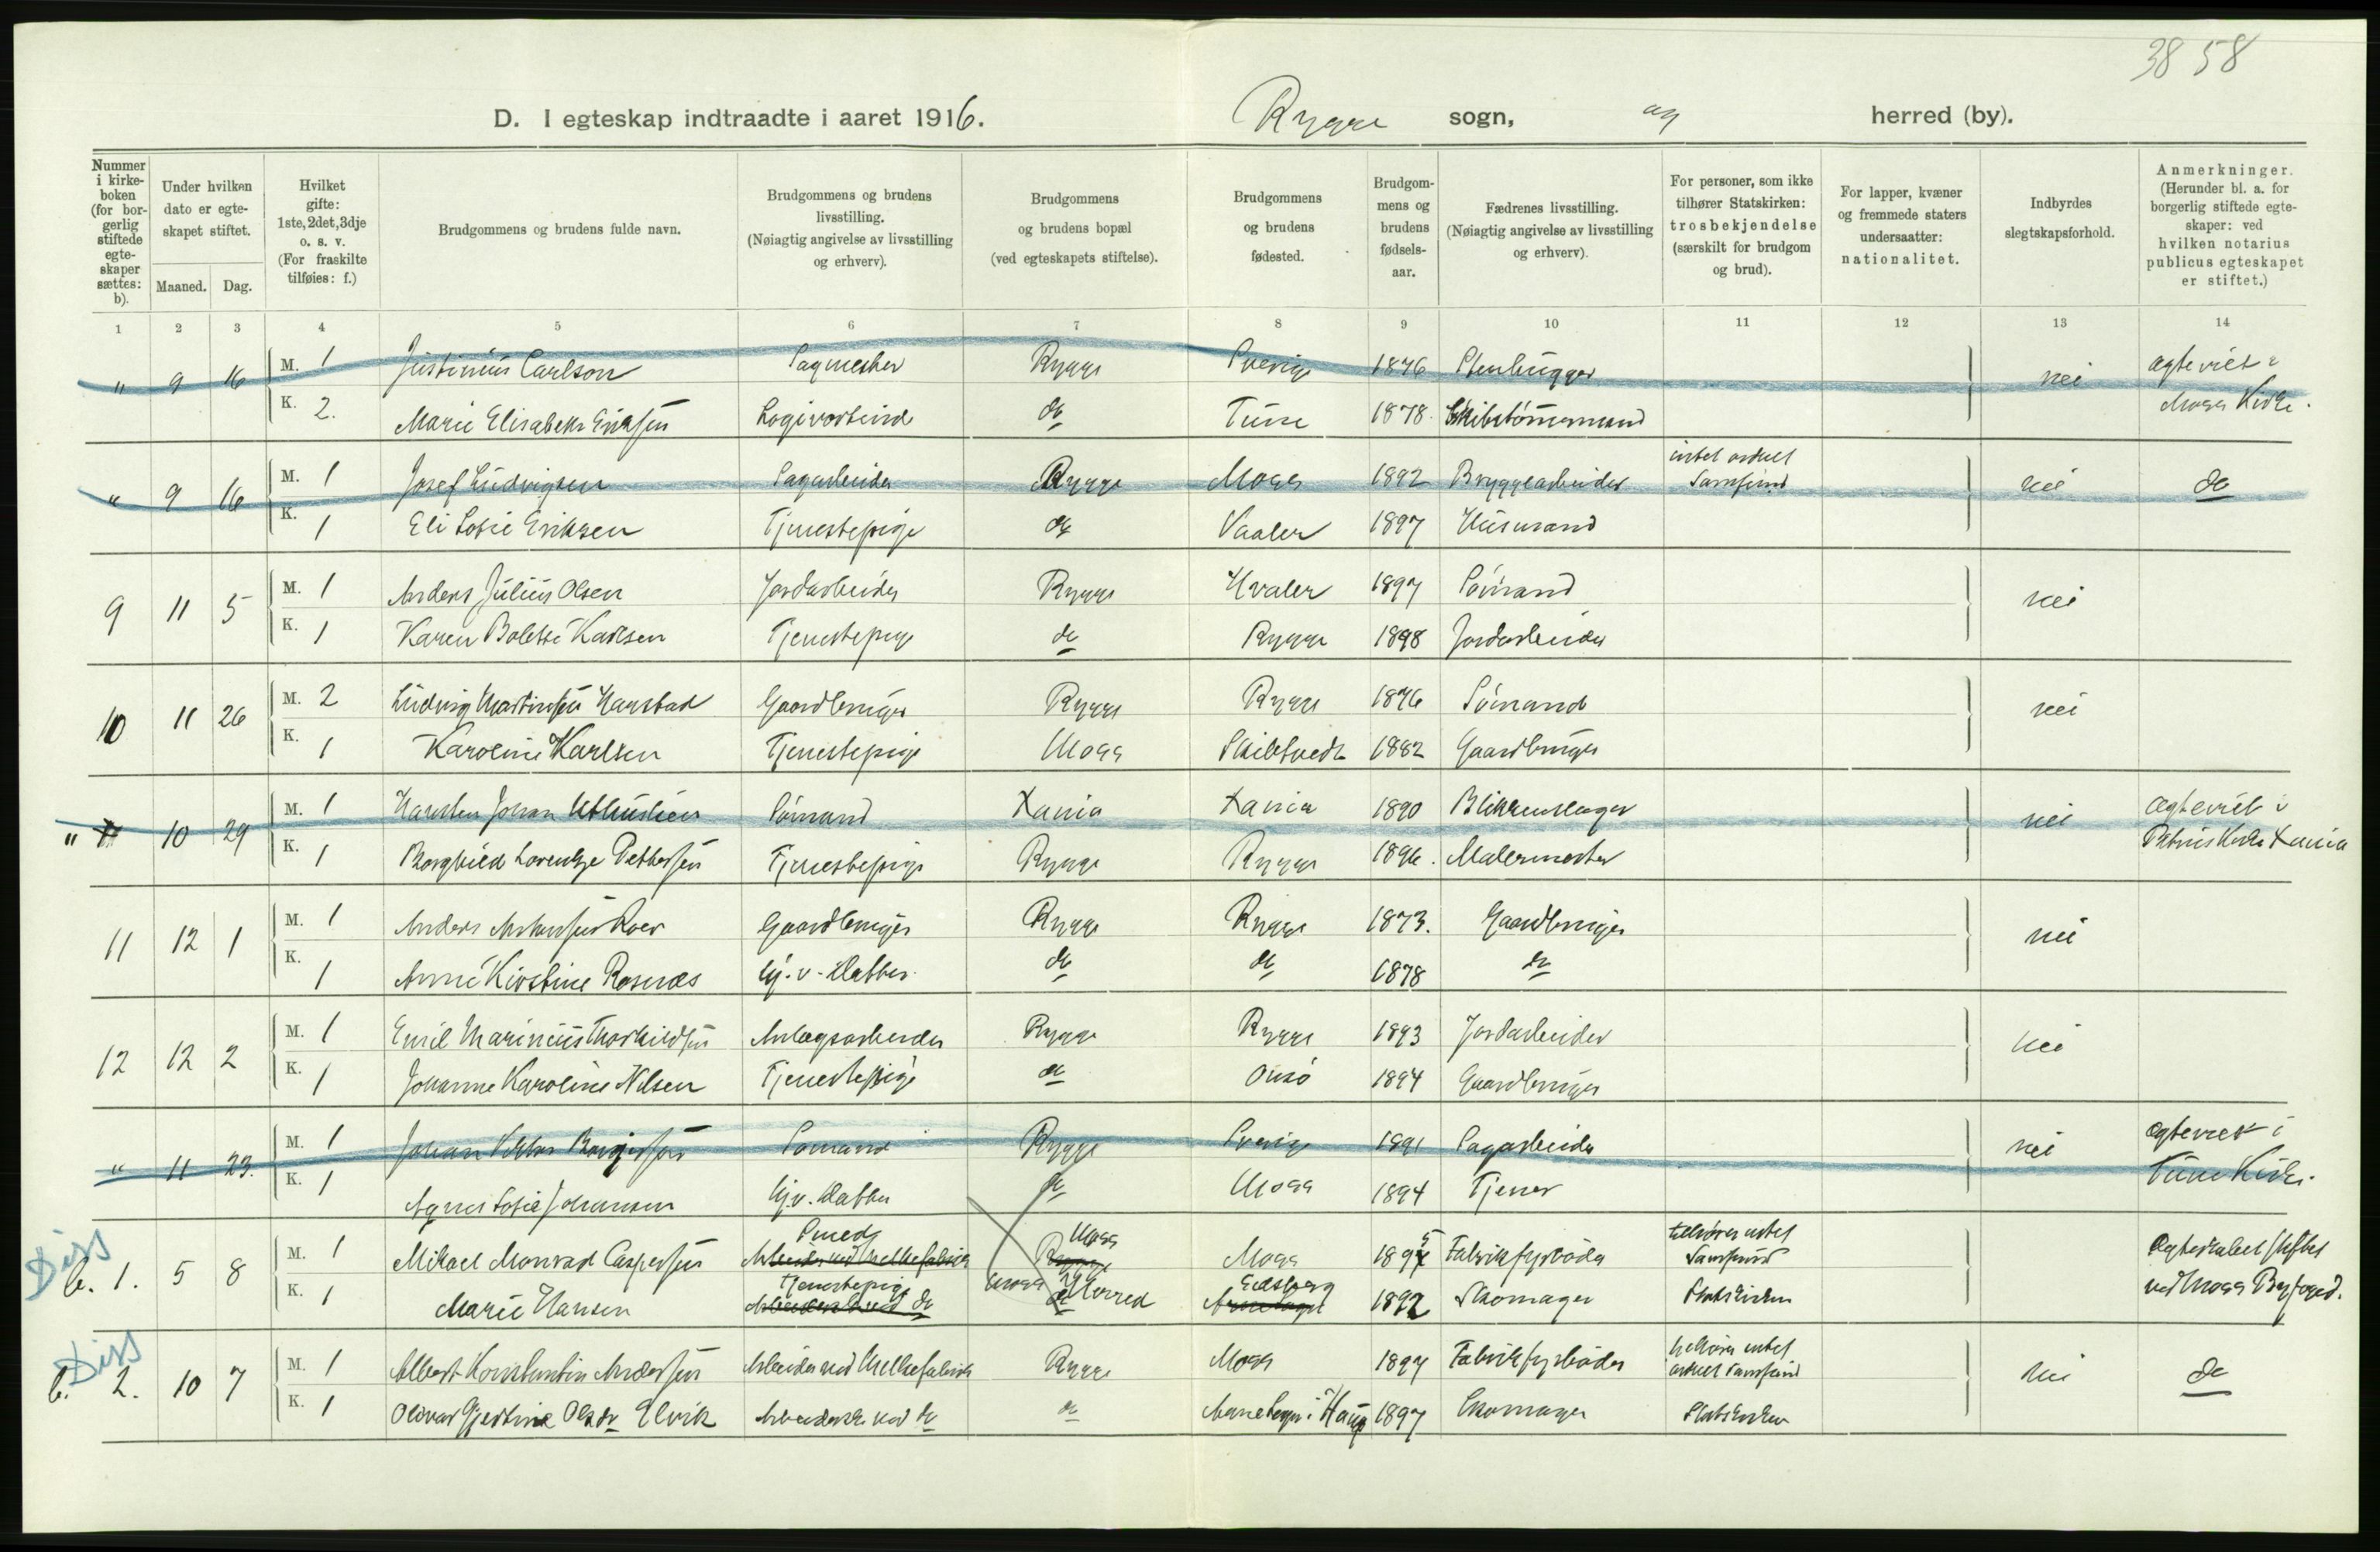 38 58
D. I egteskap indtraadte i aaret 1916. Rygge sogn, og herred (by).
Nummer i kirkeboken (for borgerlig stiftede egteskaper sættes: b).
Under hvilken dato er egteskapet stiftet.
Maaned. Dag.
Hvilket gifte: 1ste, 2det, 3dje o. s. v. (For fraskilte tilføies: f.)
Brudgommens og brudens fulde navn.
Brudgommens og brudens livsstilling. (Nøiagtig angivelse av livsstilling og erhverv).
Brudgommens og brudens bopæl (ved egteskapets stiftelse).
Brudgommens og brudens fødested.
Brudgommens og brudens fødselsaar.
Fædrenes livsstilling. (Nøiagtig angivelse av livsstilling og erhverv).
For personer, som ikke tilhører Statskirken: trosbekjendelse (særskilt for brudgom og brud).
For lapper, kvæner og fremmede staters undersaatter: nationalitet.
Indbyrdes slegtskapsforhold.
Anmerkninger. (Herunder bl. a. for borgerlig stiftede egteskaper: ved hvilken notarius publicus egteskapet er stiftet.)
1 2 3 4 5 6 7 8 9 10 11 12 13 14
" 9 16 M. 1 Justinius Carlson Sagmester Rygge Sverige 1876 Stenhugger nei ægteviet i
K. 2. Marie Elisabeth Eriksen Logivertinde do Tune 1878. Skibstømmermand Moss Kirke.
" 9 16 M. 1 Josef Ludvigsen Sagarbeider Rygge Moss 1892 Bryggearbeider intet andet Samfund nei do
K. 1 Eli Sofie Eriksen Tjenestepige do Vaaler 1897 Husmand
9 11 5 M. 1 Anders Julius Olsen Jordarbeider Rygge Hvaler 1897 Sømand nei
K. 1 Karen Bolette Karlsen Tjenestepige do Rygge 1898 Jordarbeider
10 11 26 M. 2 Ludvig Martinsen Hanstad Gaardbruger Rygge Rygge 1876 Sømand nei
K. 1 Karoline Karlsen Tjenestepige Moss Skibtvedt 1882 Gaardbruger
" 11 10 29 M. 1 Karsten Johan Sømand Xania Xania 1890 Blikkenslager nei Ægteviet i
K. 1 Borghild Lorentze Pettersen Tjenestepige Rygge Rygge 1896. Malermester Petrus Kirke Xania
11 12 1 M. 1 Anders Antonsen Roer Gaardbruger Rygge Rygge 1873. Gaardbruger nei
K. 1 Anne Kirstine Rosnæs hj. v. Datter do do 1878 do
12 12 2 M. 1 Emil Marinius Thorkildsen Anlægsarbeider Rygge Rygge 1893 Jordarbeider nei
K. 1 Johanne Karoline Nilsen Tjenestepige do Onsø 1894 Gaardbruger
" 11 23. M. 1 Johan Viktor Sømand Rygge Sverige 1891 Sagarbeider nei Ægteviet i
K. 1 Agnes Sofie Johansen hj. v. Datter do Moss 1894 Tjener Tune Kirke.
Diss
Smed Moss 5 tilhører intet
b. 1. 5 8 M. 1 Mikael Monrad Caspersen Arbeider ved Melkefabrik Rygge Moss 1897 Fabrikfyrbøder Samfund Ægteskabet stiftet
Tjenestepige Eidsberg
K. 1 Marie Hansen Arbeiderske ved do Moss Herred do 1892 Skomager Statskirken ved Moss Byfoged.
Diss
b. 2. 10 7 M. 1 Albert Konstantin Andersen Arbeider ved Melkefabrik Rygge Moss 1897 Fabrikfyrbøder tilhører intet andet Samfund nei do
K. 1 Olivar Gjertine Olsdr Elvik Arbeiderske ved do do 1897 Skomager Statskirken